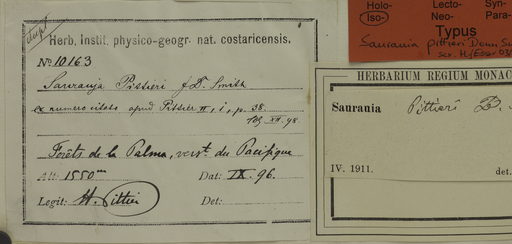 dupl.
Herb. Instit. physico-geogr. nat. costaricensis.
No 10163
Saurauja Pittieri J.D. Smith
ex numero citato apud Pittier II, i, p. 38.
XII. 98.
Forêts de la Palma, verst. du Pacifique
Alt: 1550 m Dat: IX. 96.
Legit: H. Pittier Det:
Holo- Lecto- Syn-
Iso- Neo- Para-
Typus
Saurauia pittieri Donn. Sm
HERBARIUM REGIUM MONAC
Saurania Pittieri D.
IV. 1911. det.